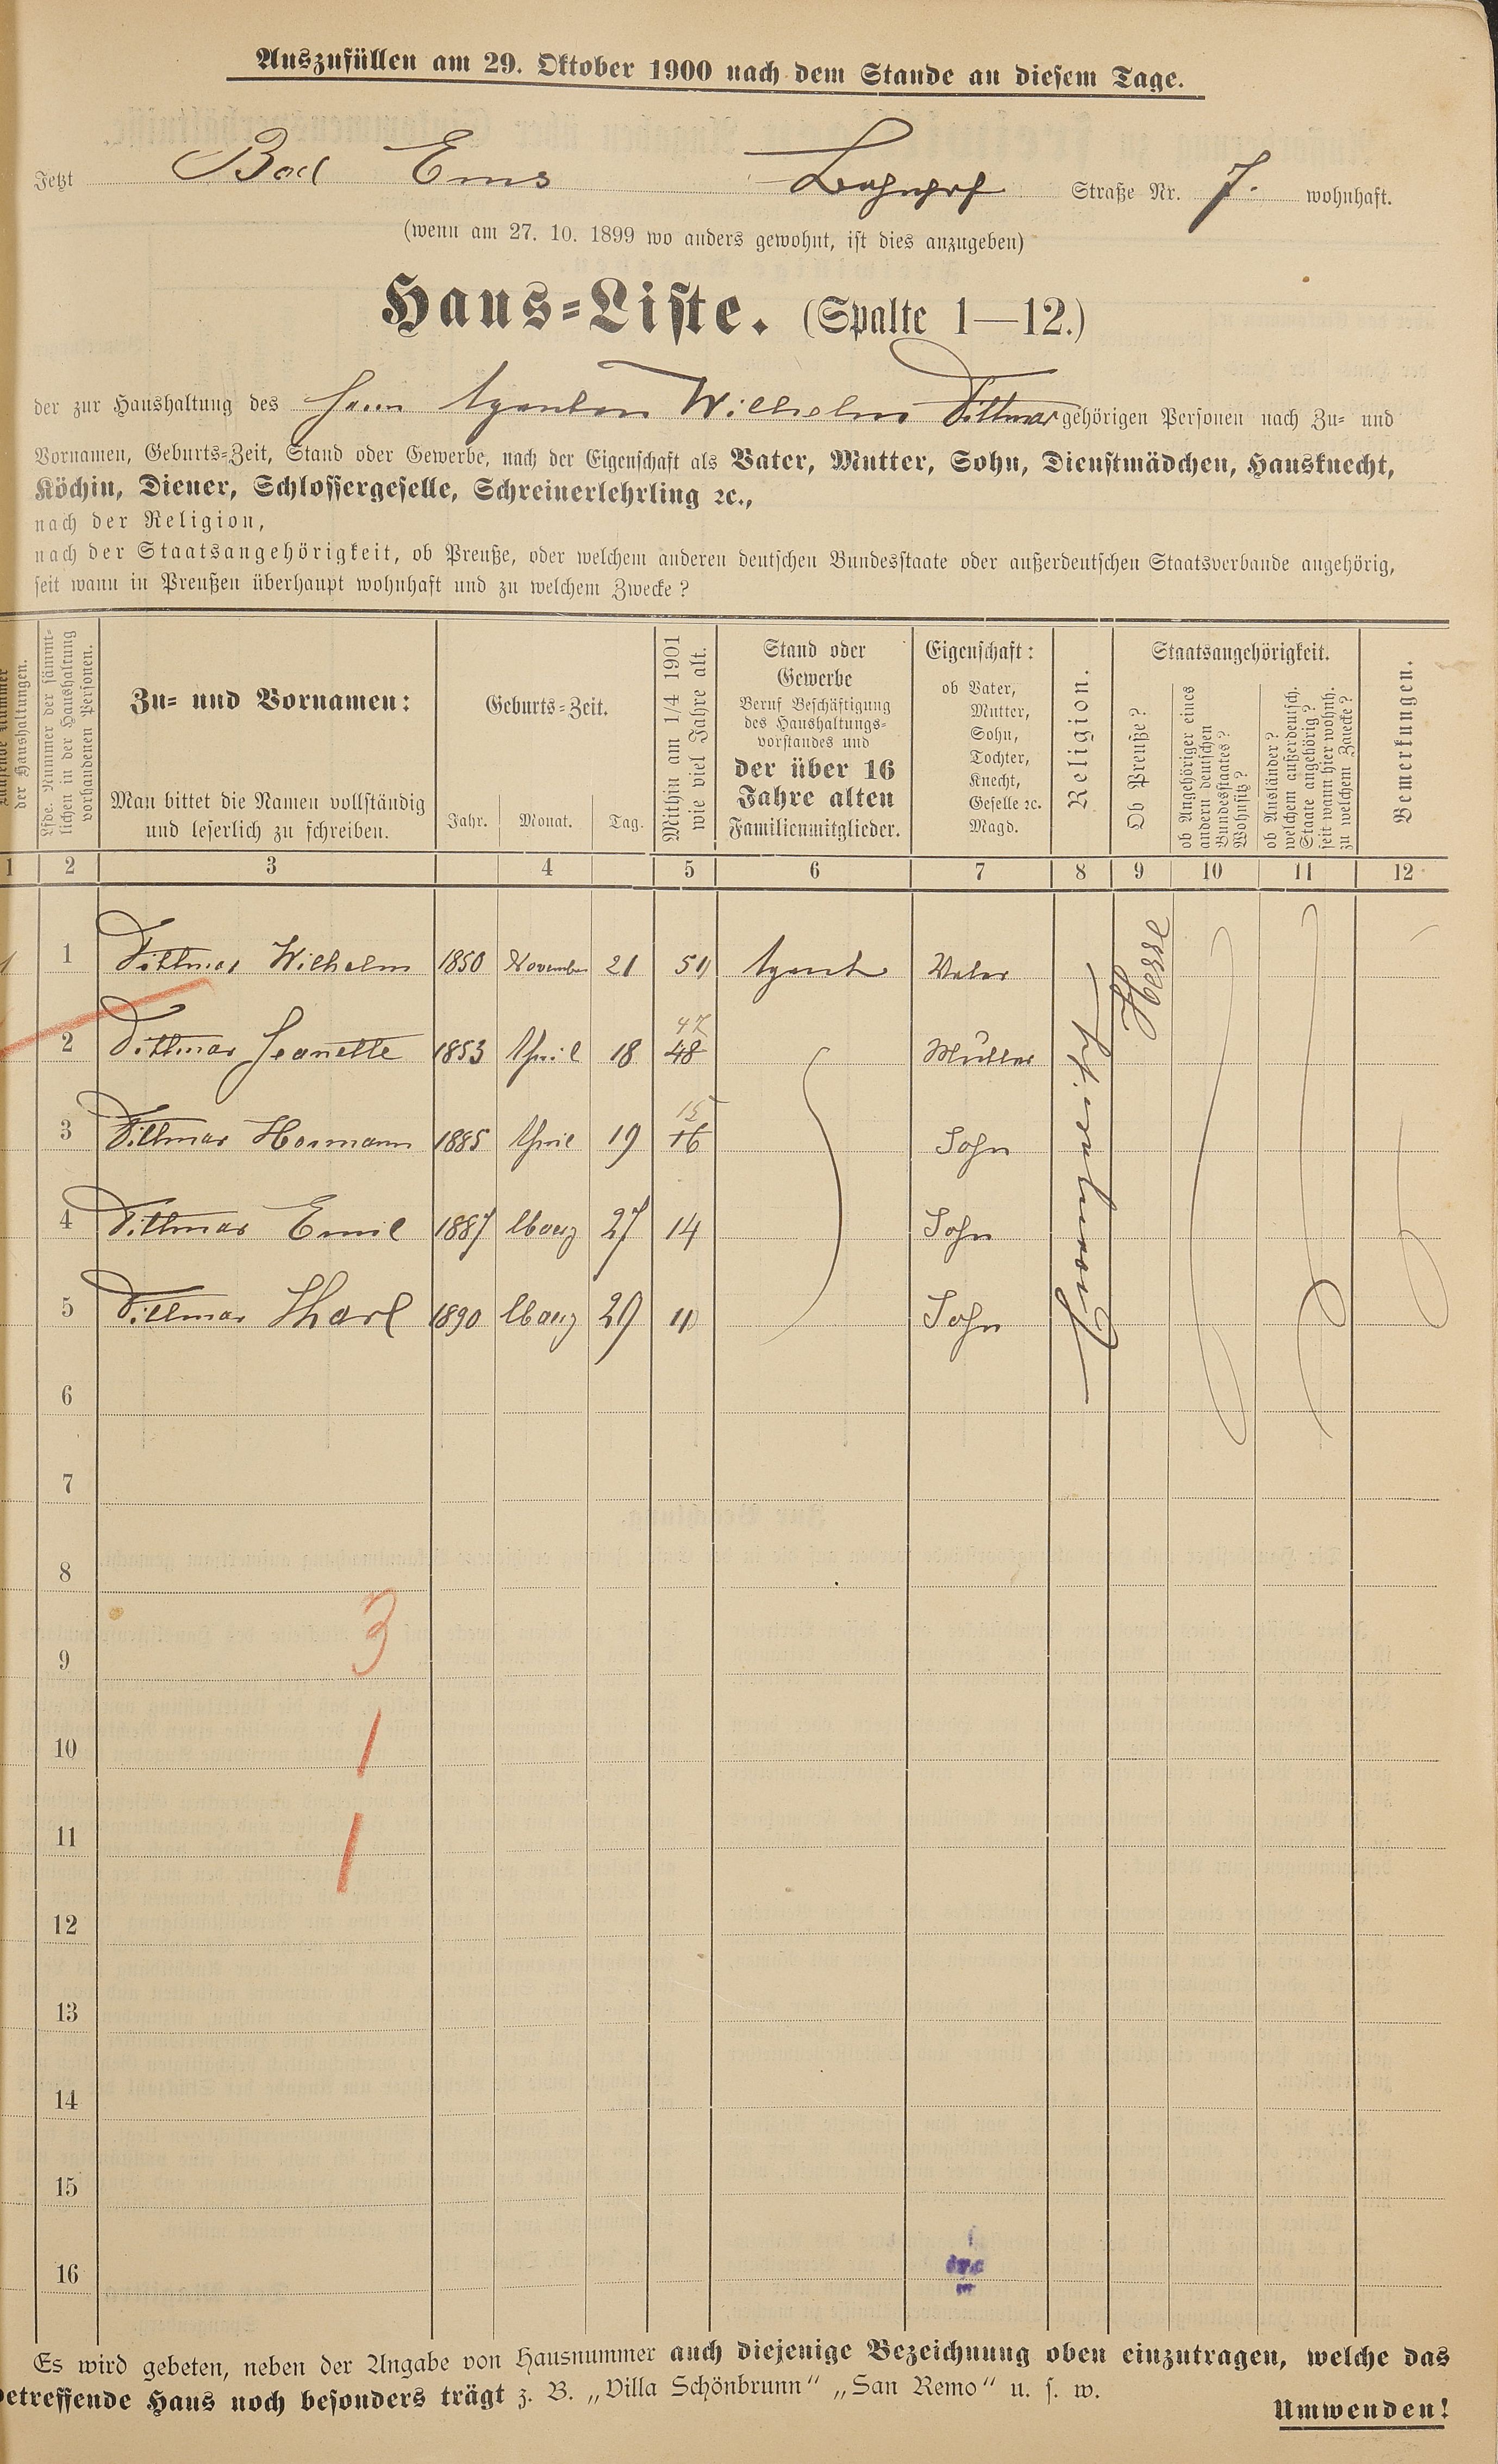 Auszufüllen am 29. Oktober 1900 nach dem Stande an diesem Tage.
Jetzt Bad Ems Bahnhof Straße Nr. 7. wohnhaft.
(wenn am 27. 10. 1899 wo anders gewohnt, ist dies anzugeben)
Haus-Liste. (Spalte 1—12.)
der zur Haushaltung des Herrn Agenten Wilhelm Dittmar gehörigen Personen nach Zu- und
Vornamen, Geburts-Zeit, Stand oder Gewerbe, nach der Eigenschaft als Vater, Mutter, Sohn, Dienstmädchen, Hausknecht,
Köchin, Diener, Schlossergeselle, Schreinerlehrling ꝛc.,
nach der Religion,
nach der Staatsangehörigkeit, ob Preuße, oder welchem anderen deutschen Bundesstaate oder außerdeutschen Staatsverbande angehörig,
seit wann in Preußen überhaupt wohnhaft und zu welchem Zwecke?
laufende Nummer
der Haushaltungen.
Lfde. Nummer der sämmt-
lichen in der Haushaltung
vorhandenen Personen.
Zu- und Vornamen:
Man bittet die Namen vollständig
und leserlich zu schreiben.
Geburts-Zeit.
Jahr. Monat. Tag.
Mithin am 1/4 1901
wie viel Jahre alt.
Stand oder
Gewerbe
Beruf Beschäftigung
des Haushaltungs-
vorstandes und
der über 16
Jahre alten
Familienmitglieder.
Eigenschaft:
ob Vater,
Mutter,
Sohn,
Tochter,
Knecht,
Geselle ꝛc.
Magd.
Religion.
Staatsangehörigkeit.
Ob Preuße?
ob Angehöriger eines
andern deutschen
Bundesstaates?
Wohnsitz?
ob Ausländer?
welchem außerdeutsch.
Staate angehörig?
seit wann hier wohnh.
zu welchem Zwecke?
Bemerkungen.
1 2 3 4 5 6 7 8 9 10 11 12
1 Dittmar Wilhelm 1850 November 21 50 Agent Vater Hesse
2 Dittmar Jeanette 1853 April 18 47 48 Mutter
3 Dittmar Hermann 1885 April 19 15 16 Sohn
4 Dittmar Emil 1887 März 27 14 Sohn
5 Dittmar Kharl 1890 März 29 11 Sohn
6
7
8
9 3
10 1
11 1
12
13
14
15
16
Es wird gebeten, neben der Angabe von Hausnummer auch diejenige Bezeichnung oben einzutragen, welche das
betreffende Haus noch besonders trägt z. B. „Villa Schönbrunn“ „San Remo“ u. s. w.
Umwenden!